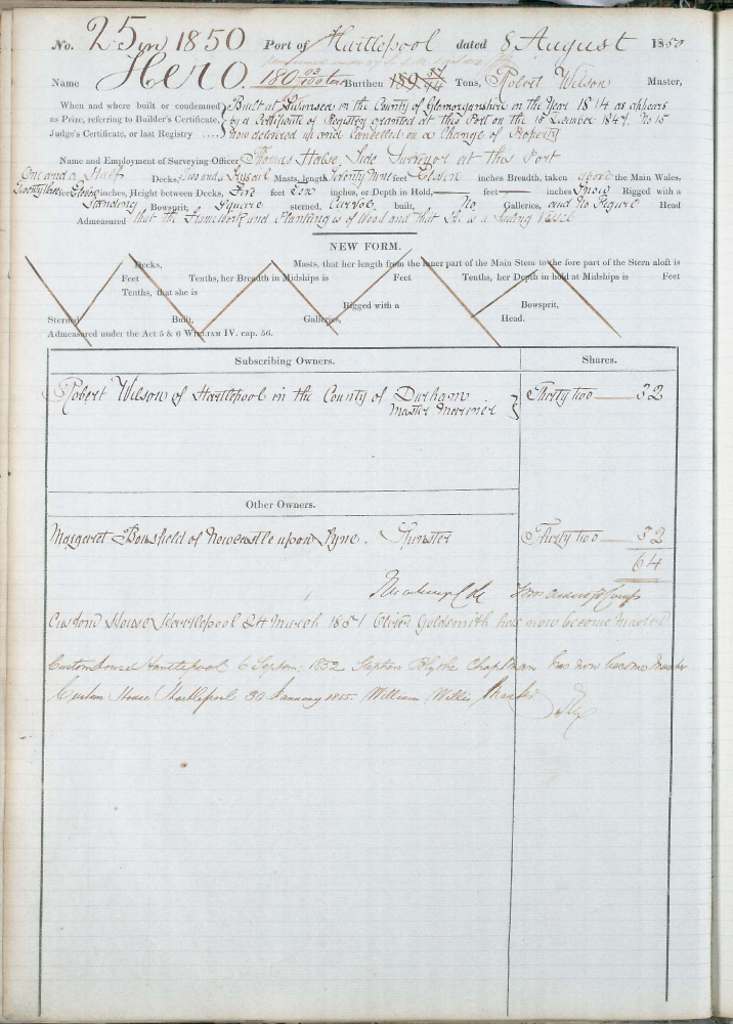 No. 25 in 1850 Port of Hartlepool dated 8 August 1850
Name Hero 180 93/100 tons Burthen 189 Tons, Robert Wilson Master,
When and where built or condemned Built at in the County of Glamorganshire in the Year 1814 as appears
as Prize, referring to Builder's Certificate, by a Certificate of Registry granted at this Port on the 15 December 1847. No 15
Judge's Certificate, or last Registry .... now delivered up and Cancelled on a Change of Property
Name and Employment of Surveying Officer Thomas Halse, Tide Surveyor at this Port
One and a Half Decks, Two and a Masts, length Seventy Nine feet Eleven inches Breadth, taken above the Main Wales,
Twenty two feet Eleven inches, Height between Decks, Five feet Ten inches, or Depth in Hold, — feet — inches Snow Rigged with a
Standing Bowsprit, Square sterned, Carvel built, No Galleries, and No Figure Head
Admeasured that the Framework and Planking is of Wood and that She is a Sailing Vessel
NEW FORM.
Decks, Masts, that her length from the inner part of the Main Stem to the fore part of the Stern aloft is
Feet Tenths, her Breadth in Midships is Feet Tenths, her Depth in hold at Midships is Feet
Tenths, that she is Rigged with a Bowsprit,
Sterned Built, Galleries, Head.
Admeasured under the Act 5 & 6 WILLIAM IV. cap. 56.
Subscribing Owners. Shares.
Robert Wilson of Hartlepool in the County of Durham Thirty two — 32
Master Mariner
Other Owners.
Margaret Bousfield of Newcastle upon Tyne. Spinster Thirty two — 32
64
Custom House Hartlepool 24 March 1851 Oliver Goldsmith has now become Master
Customhouse Hartlepool 6 Septem: 1852 Stephen Blythe Chapman has now become Master
Custom House Hartlepool 30 January 1855. William Willis Master